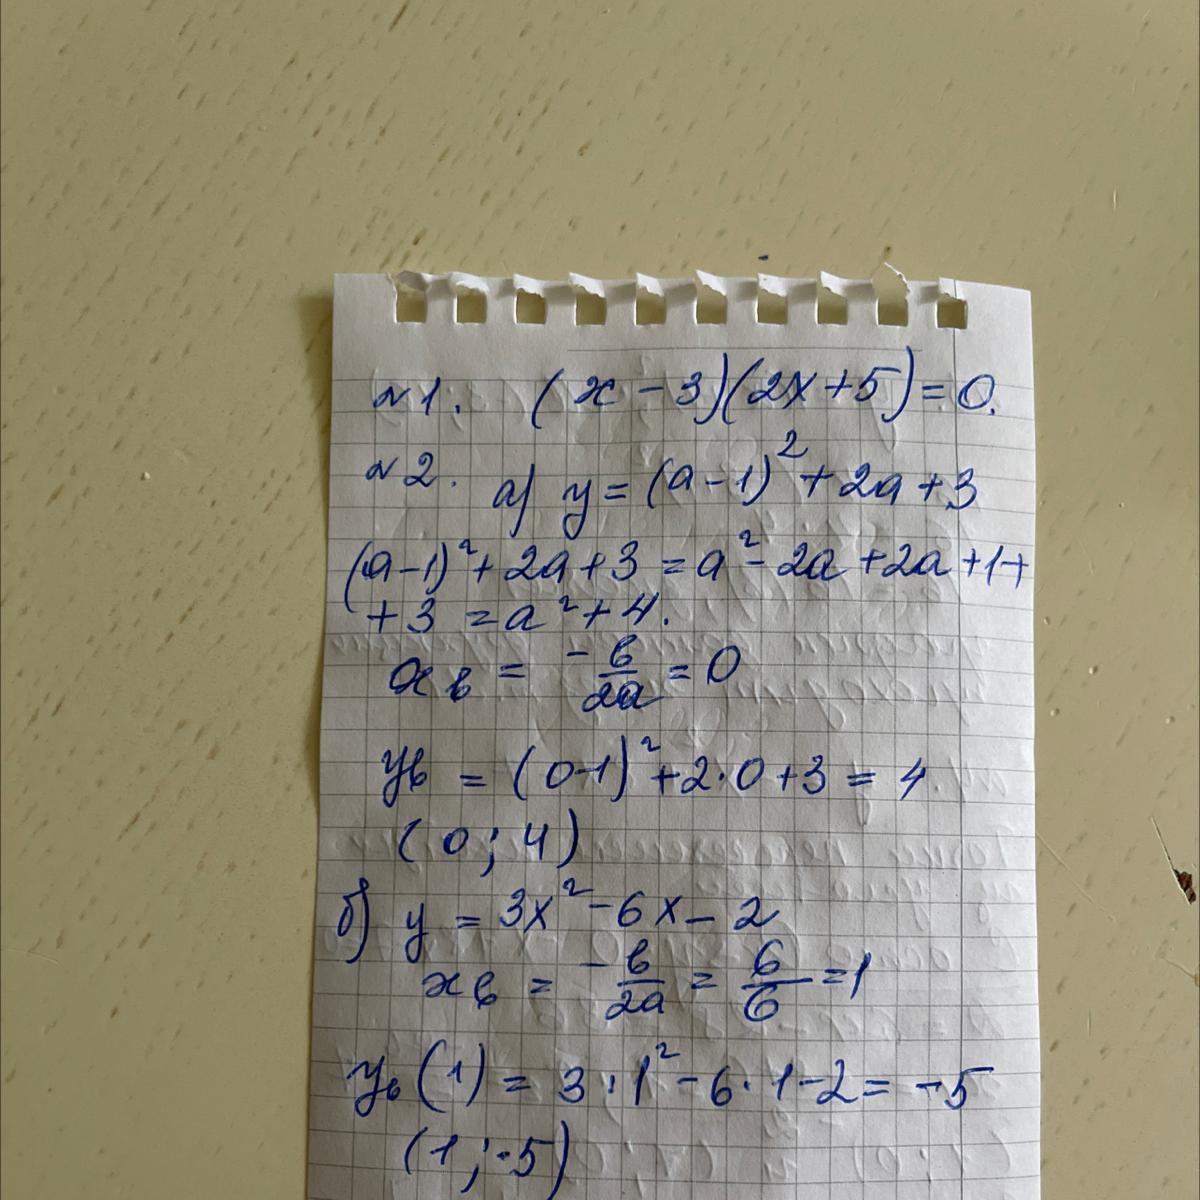 №1. (x - 3)(2x+5)=0.
№2. а) y = (a-1)² + 2a + 3
(a-1)² + 2a + 3 = a² - 2a + 2a + 1 +
+ 3 = a² + 4.
xв = -в/2a = 0
yв = (0-1)² + 2·0 + 3 = 4
(0; 4)
б) y = 3x² - 6x - 2
xв = -в/2a = 6/6 = 1
yв(1) = 3·1² - 6·1 - 2 = -5
(1; -5)